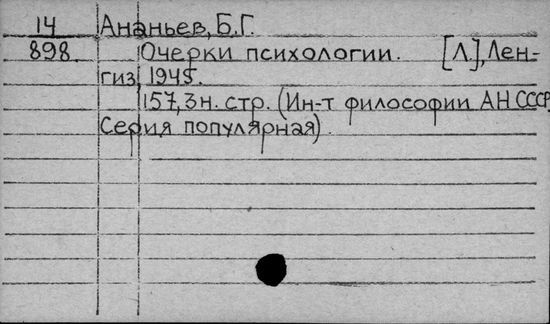 14 Ананьев, Б.Г.
898. Очерки психологии. [Л.], Лен-
гиз, 1945.
157,3н. стр. (Ин-т философии АН СССР.
Серия популярная)